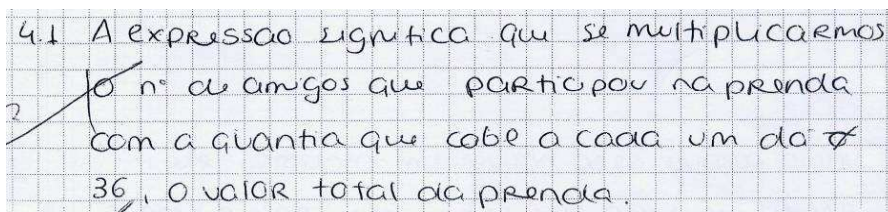 4.1 A expressão significa que se multiplicarmos
o nº de amigos que participou na prenda
?
com a quantia que cabe a cada um dá
36, o valor total da prenda.